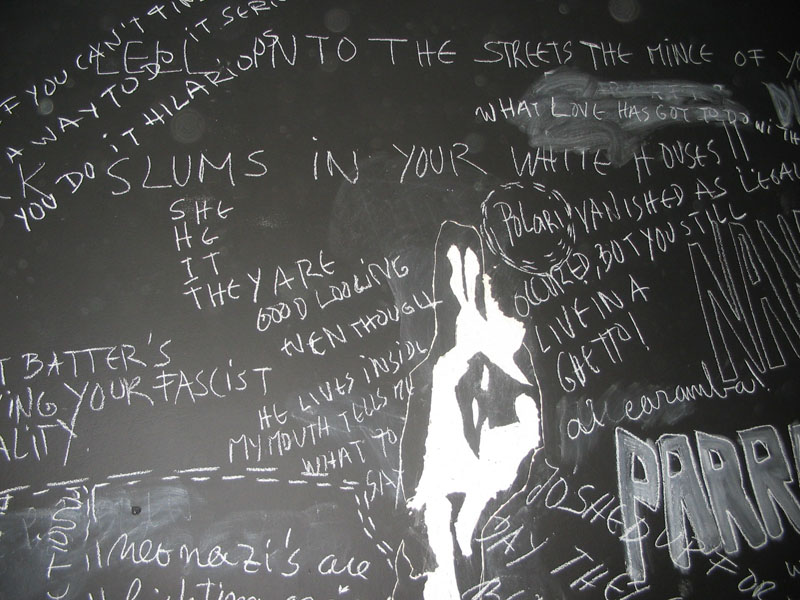 IF YOU CAN'T FIND
A WAY TO DO IT SERI
YOU DO IT HILARIO
ON TO THE STREETS THE MINCE OF YO
WHAT LOVE HAS GOT TO DO WITH
K SLUMS IN YOUR WHITE HOUSES!!
SHE
HE
IT
THEY ARE
GOOD LOOKING
EVEN THOUGH
HE LIVES INSIDE
MY MOUTH TELLS ME
WHAT TO
SAY
POLARI VANISHED AS LEGAL
OCCURED, BUT YOU STILL
LIVE IN A
GHETTO!
NAN
ai caramba!
PARR
T BATTER'S
ING YOUR FASCIST
ALITY.
neonazi's are
fighting